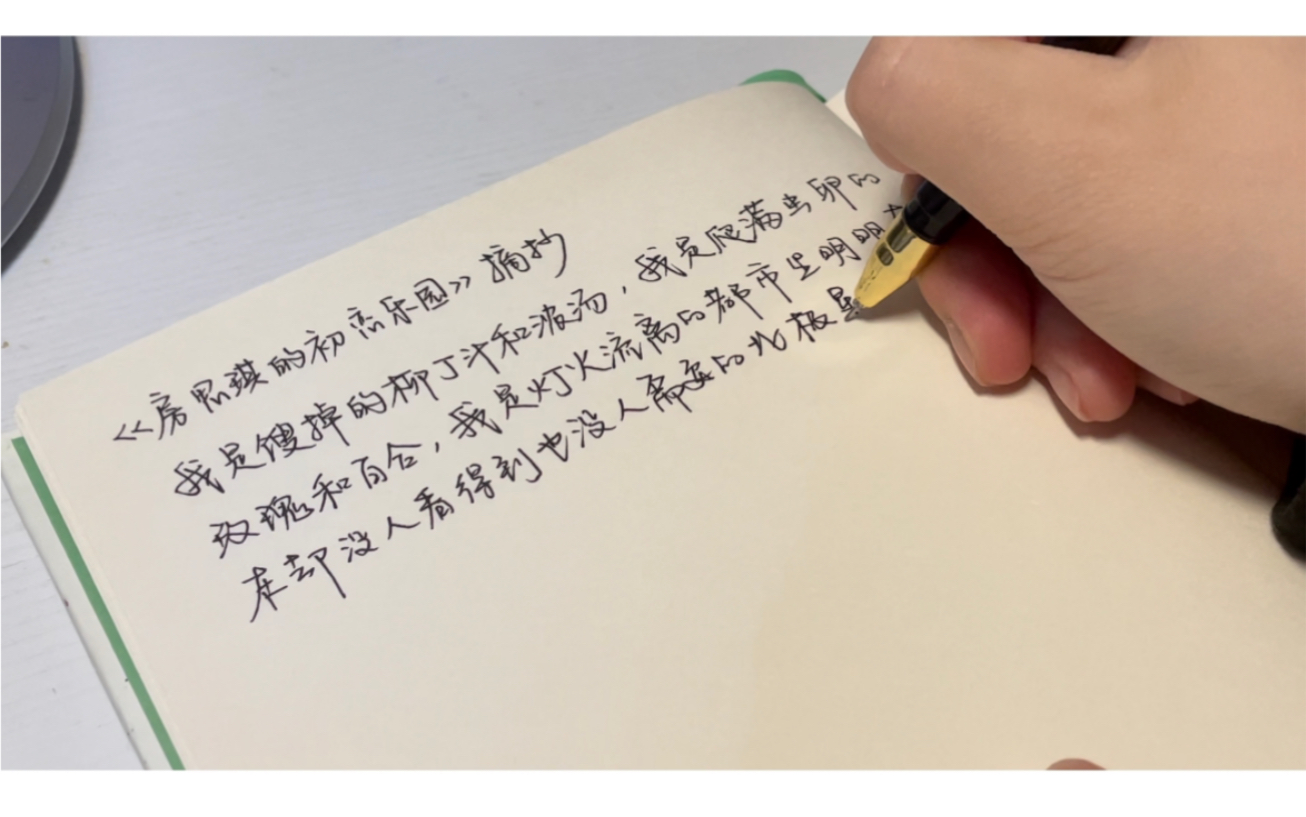 《房思琪的初恋乐园》摘抄
我是馊掉的柳丁汁和浓汤，我是爬满虫卵的
玫瑰和百合，我是灯火流离的都市里明明
在却没人看得到也没人需要的北极星